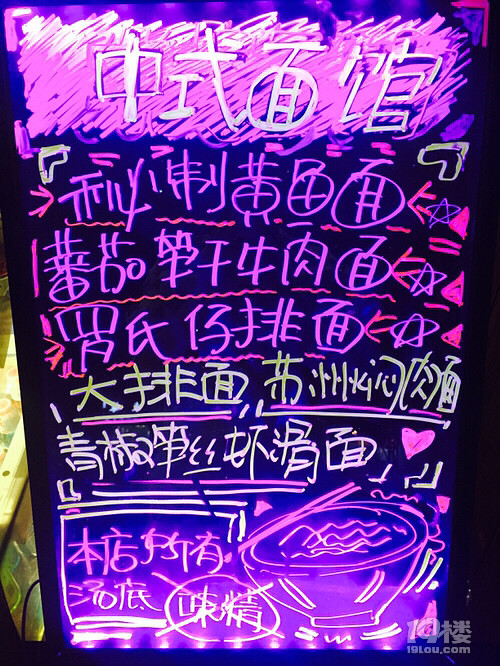 中式面馆
秘制黄鱼面
蕃茄笋干牛肉面
罗氏仔排面
大排面 苏州焖肉面
青椒笋丝虾滑面
本店所有
汤底 味精
19楼
19lou.com